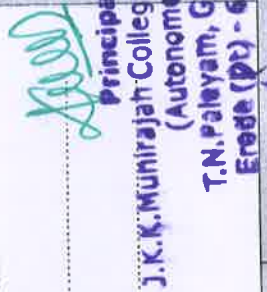 Principa
J.K.K.Munirajah College
(Autonomo
T.N.Palayam, G
Erode (Dt) - 6